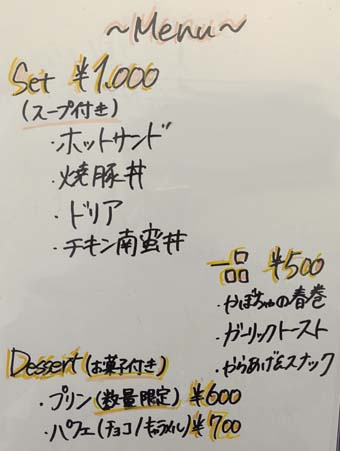 ~Menu~
Set ¥1,000
(スープ付き)
・ホットサンド
・焼豚丼
・ドリア
・チキン南蛮丼
一品 ¥500
・かぼちゃの春巻
・ガーリックトースト
・からあげ&スナック
Dessert (お菓子付き)
・プリン (数量限定) ¥600
・パフェ (チョコ/キャラメル) ¥700